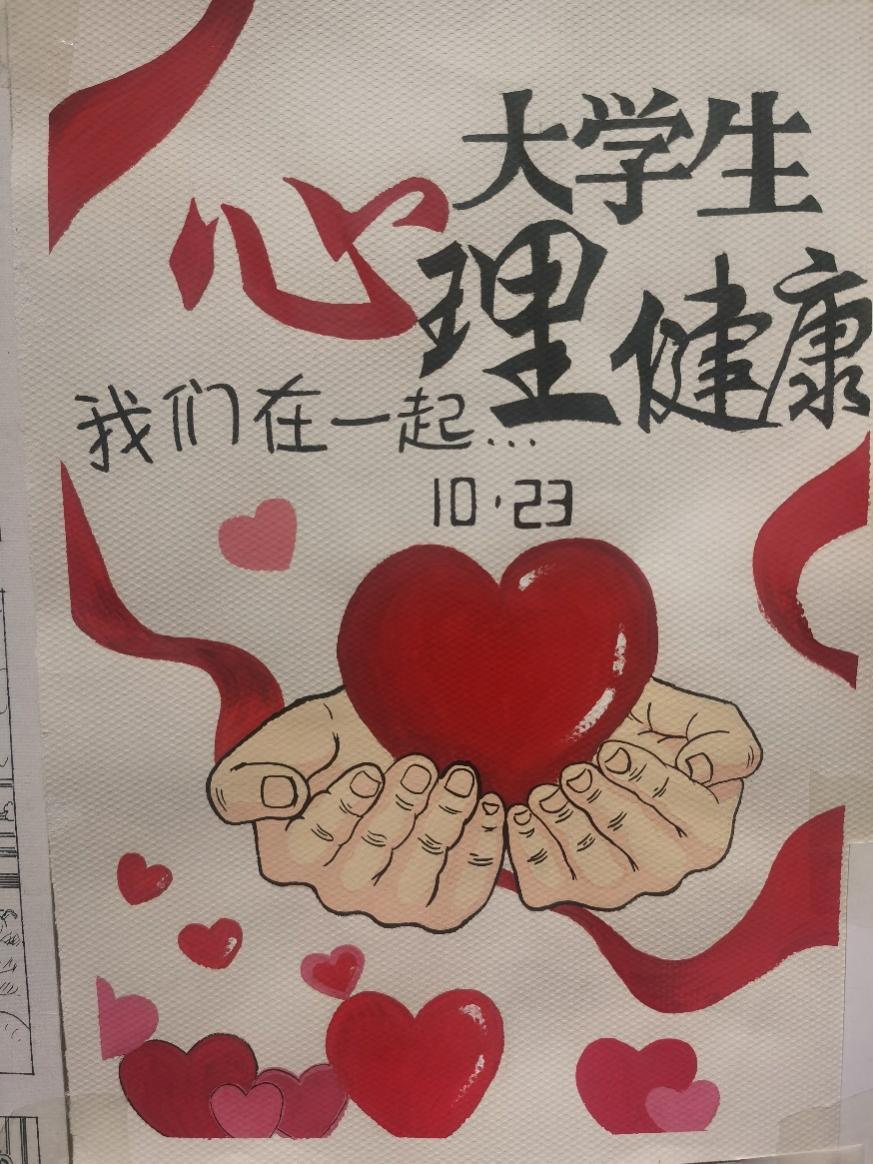 大学生
心理健康
我们在一起...
10·23